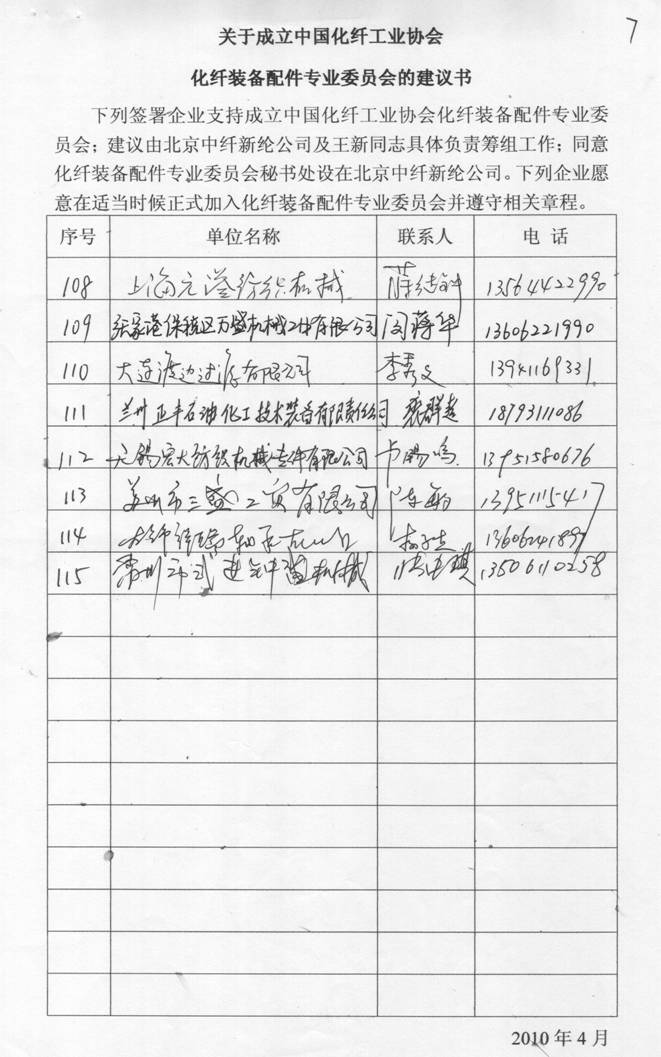 7
关于成立中国化纤工业协会
化纤装备配件专业委员会的建议书
下列签署企业支持成立中国化纤工业协会化纤装备配件专业委
员会；建议由北京中纤新纶公司及王新同志具体负责筹组工作；同意
化纤装备配件专业委员会秘书处设在北京中纤新纶公司。下列企业愿
意在适当时候正式加入化纤装备配件专业委员会并遵守相关章程。
序号 单位名称 联系人 电 话
108 上海元溢纺织机械 13564422990
109 张家港保税区万盛机械工体有限公司 闵蒋华 13606221990
110 大连渡边过滤有限公司 李秀文 13941169331
111 兰州正丰石油化工技术装备有限责任公司 裴群赵 18793111086
112 无锡宏大纺织机械专件有限公司 13951580676
113 苏州市三盛工贸有限公司 陈 13951115417
114 1360624189
115 常州市武进 机械 13506110258
2010 年 4 月